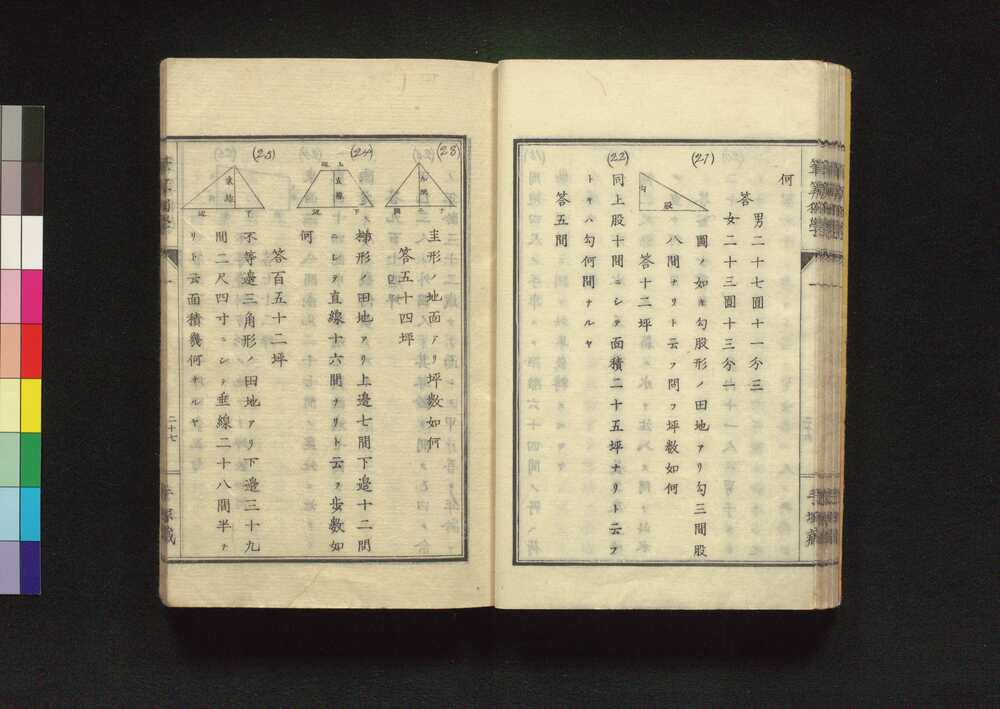 何
答
男二十七圓十一分三
女二十三圓十三分一
(21)
勾
股
圖ノ如キ勾股形ノ田地アリ勾三間股
八間ナリト云フ問フ坪數如何
答十二坪
(22)
同上股十間ニシテ面積二十五坪ナリト云フ
トキハ勾何間ナルヤ
答五間
筆算獨學
一
(23)
圭形ノ地面アリ坪數如何
答五十四坪
(24)
上
邊
直線
下
邊
梯形ノ田地アリ上邊七間下邊十二間
ニシテ直線十六間ナリト云フ歩數如
何
答百五十二坪
(25)
垂線
下
邊
不等邊三角形ノ田地アリ下邊三十九
間二尺四寸ニシテ垂線二十八間半ナ
リト云面積幾何ナルヤ
一
二十七